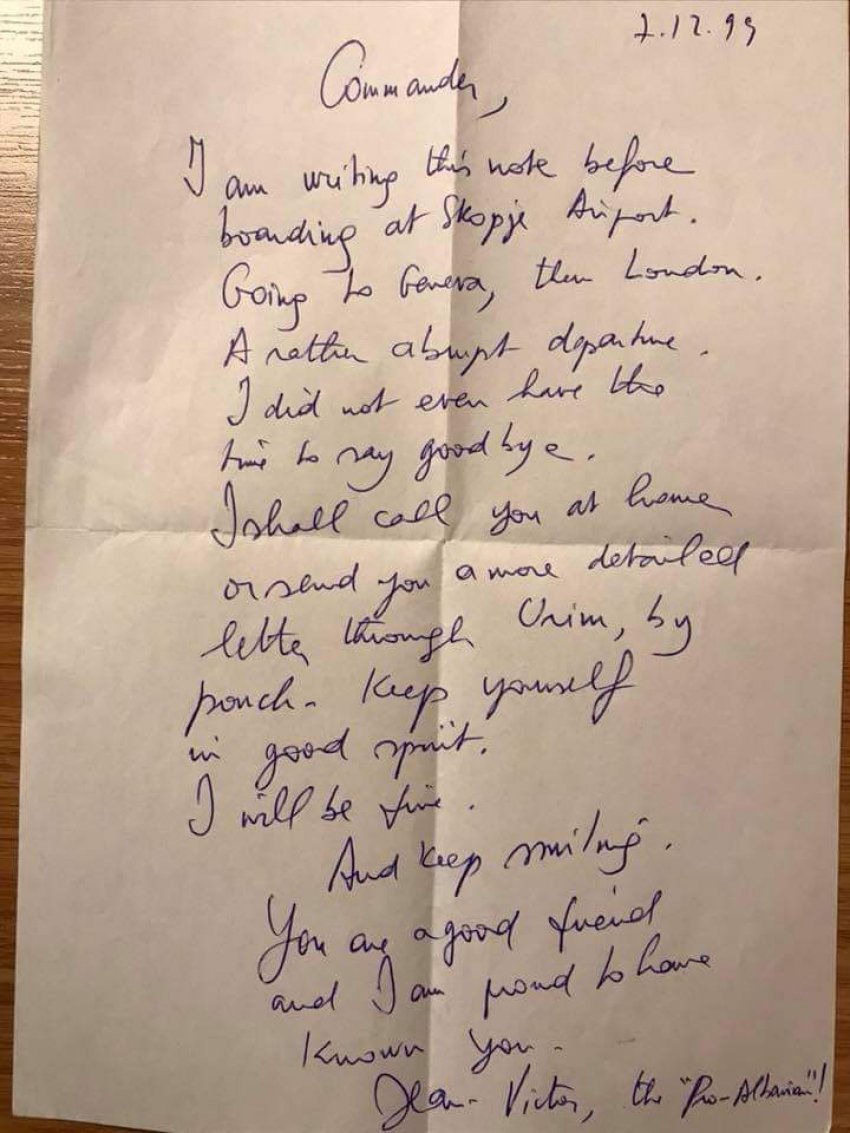 7.12.99
Commander,
I am writing this note before
boarding at Skopje Airport.
Going to Geneva, then London.
A rather abrupt departure.
I did not even have the
time to say goodbye.
I shall call you at home
or send you a more detailed
letter through Urim, by
pouch. Keep yourself
in good spirit.
I will be fine.
And keep smiling.
You are a good friend
and I am proud to have
known you.
Jean-Victor, the "Pro-Albanian"!